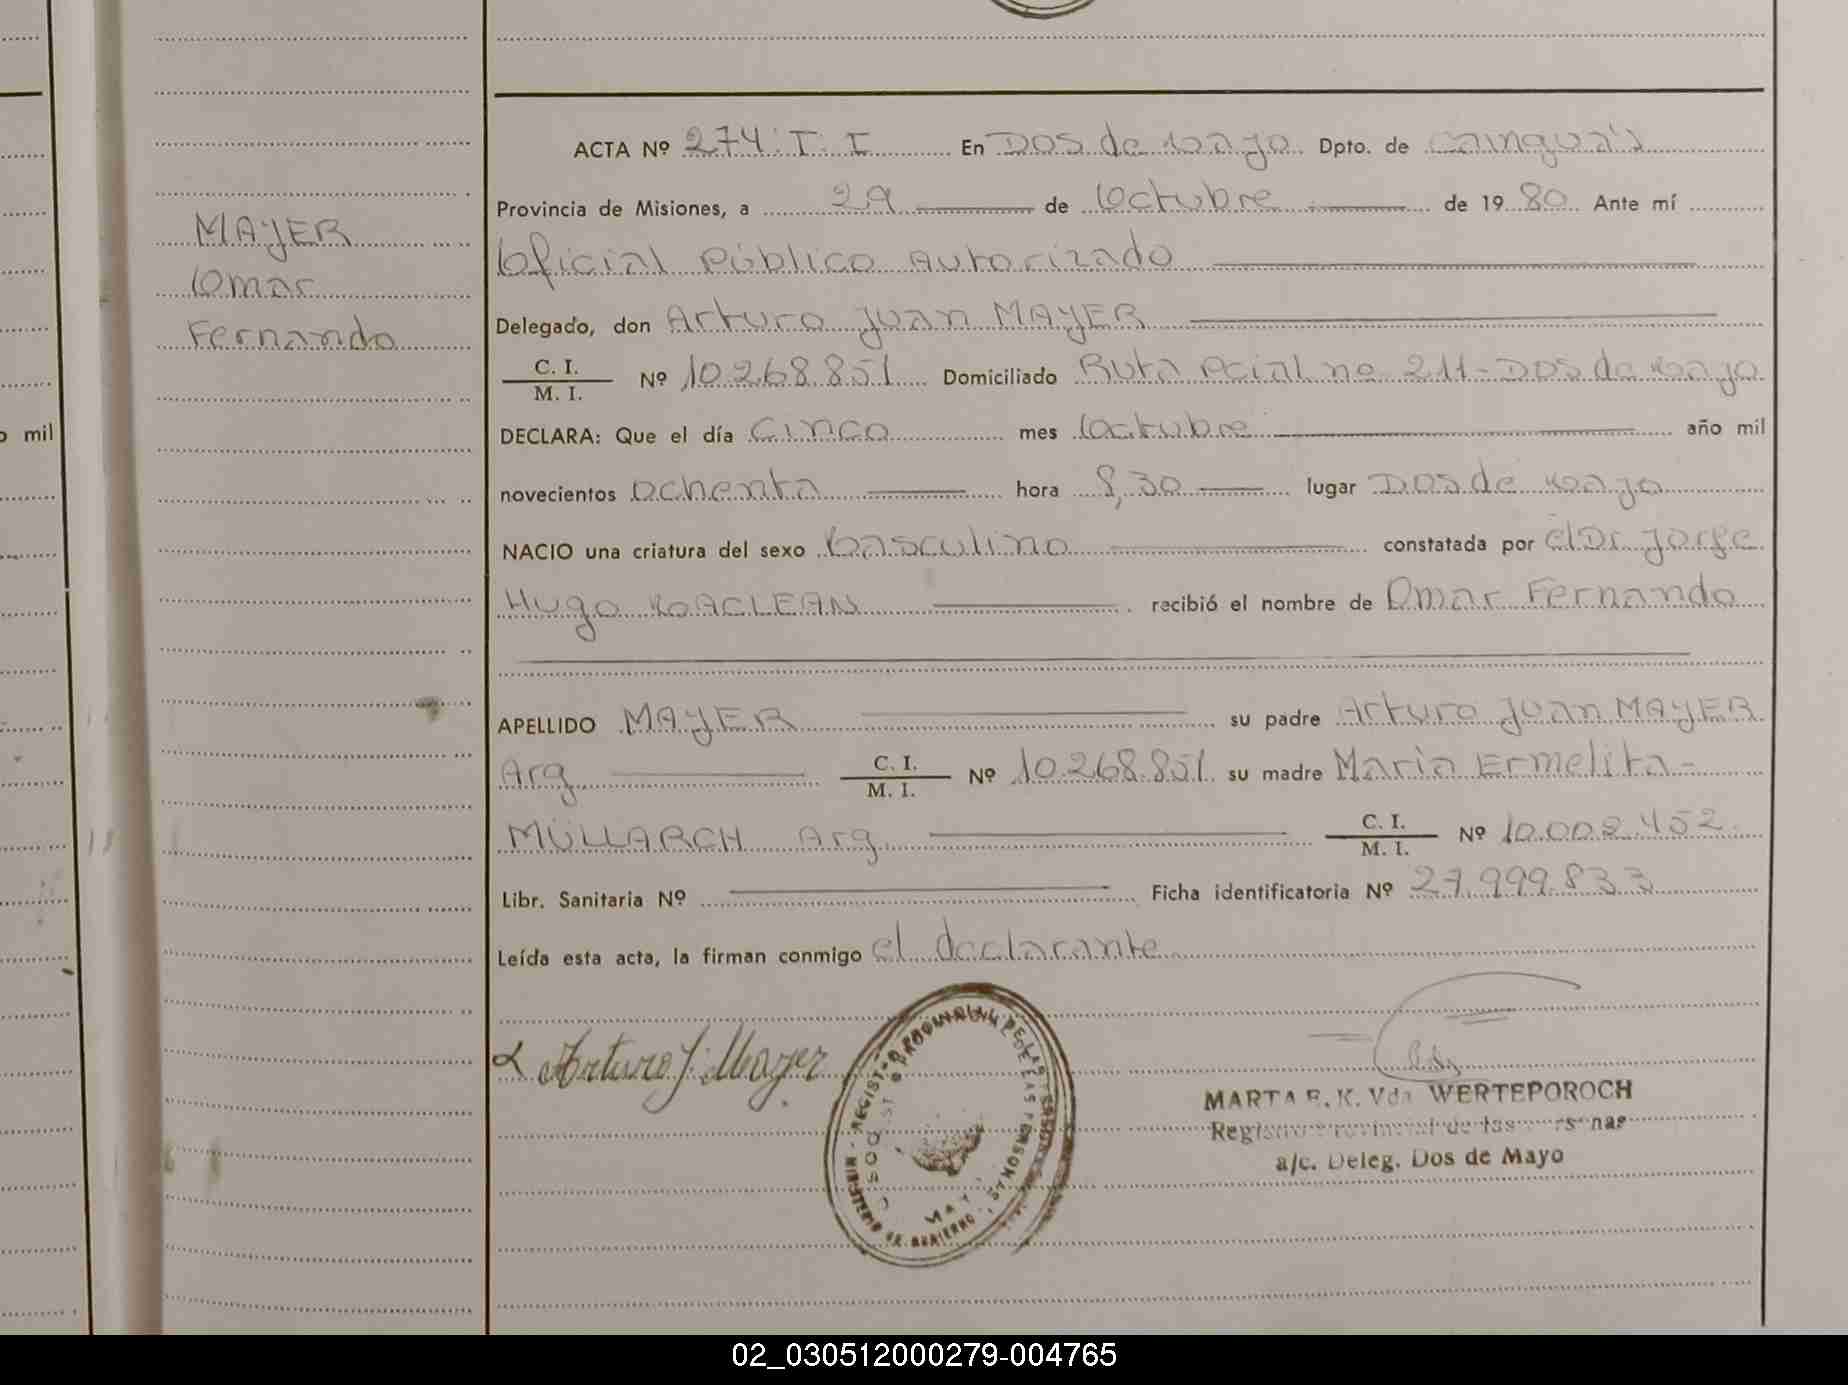 ACTA Nº 274. T. I En Dos de Mayo Dpto. de Cainguá's
Provincia de Misiones, a 29 de Octubre de 1980 Ante mí
MAYER
Oficial Público Autorizado
Omar
Delegado, don Arturo Juan MAYER
Fernando
C. I.
M. I. Nº 10.268.851 Domiciliado Ruta Pcial nº 211 - Dos de Mayo
DECLARA: Que el día Cinco mes Octubre año mil
o mil
novecientos Ochenta hora 8,30 lugar Dos de Mayo
NACIO una criatura del sexo Masculino constatada por el Dr Jorge
Hugo MACLEAN recibió el nombre de Omar Fernando
APELLIDO MAYER su padre Arturo Juan MAYER
Arg C. I.
M. I. Nº 10.268.851 su madre Maria Ermelita -
MÜLLARCH Arg C. I.
M. I. Nº 10.002.452.
Libr. Sanitaria Nº Ficha identificatoria Nº 27.999.833
Leída esta acta, la firman conmigo el declarante
Arturo J. Mayer
MARTA E. K. Vda WERTEPOROCH
Registro Provincial de las Personas
a/c. Deleg. Dos de Mayo
02_030512000279-004765